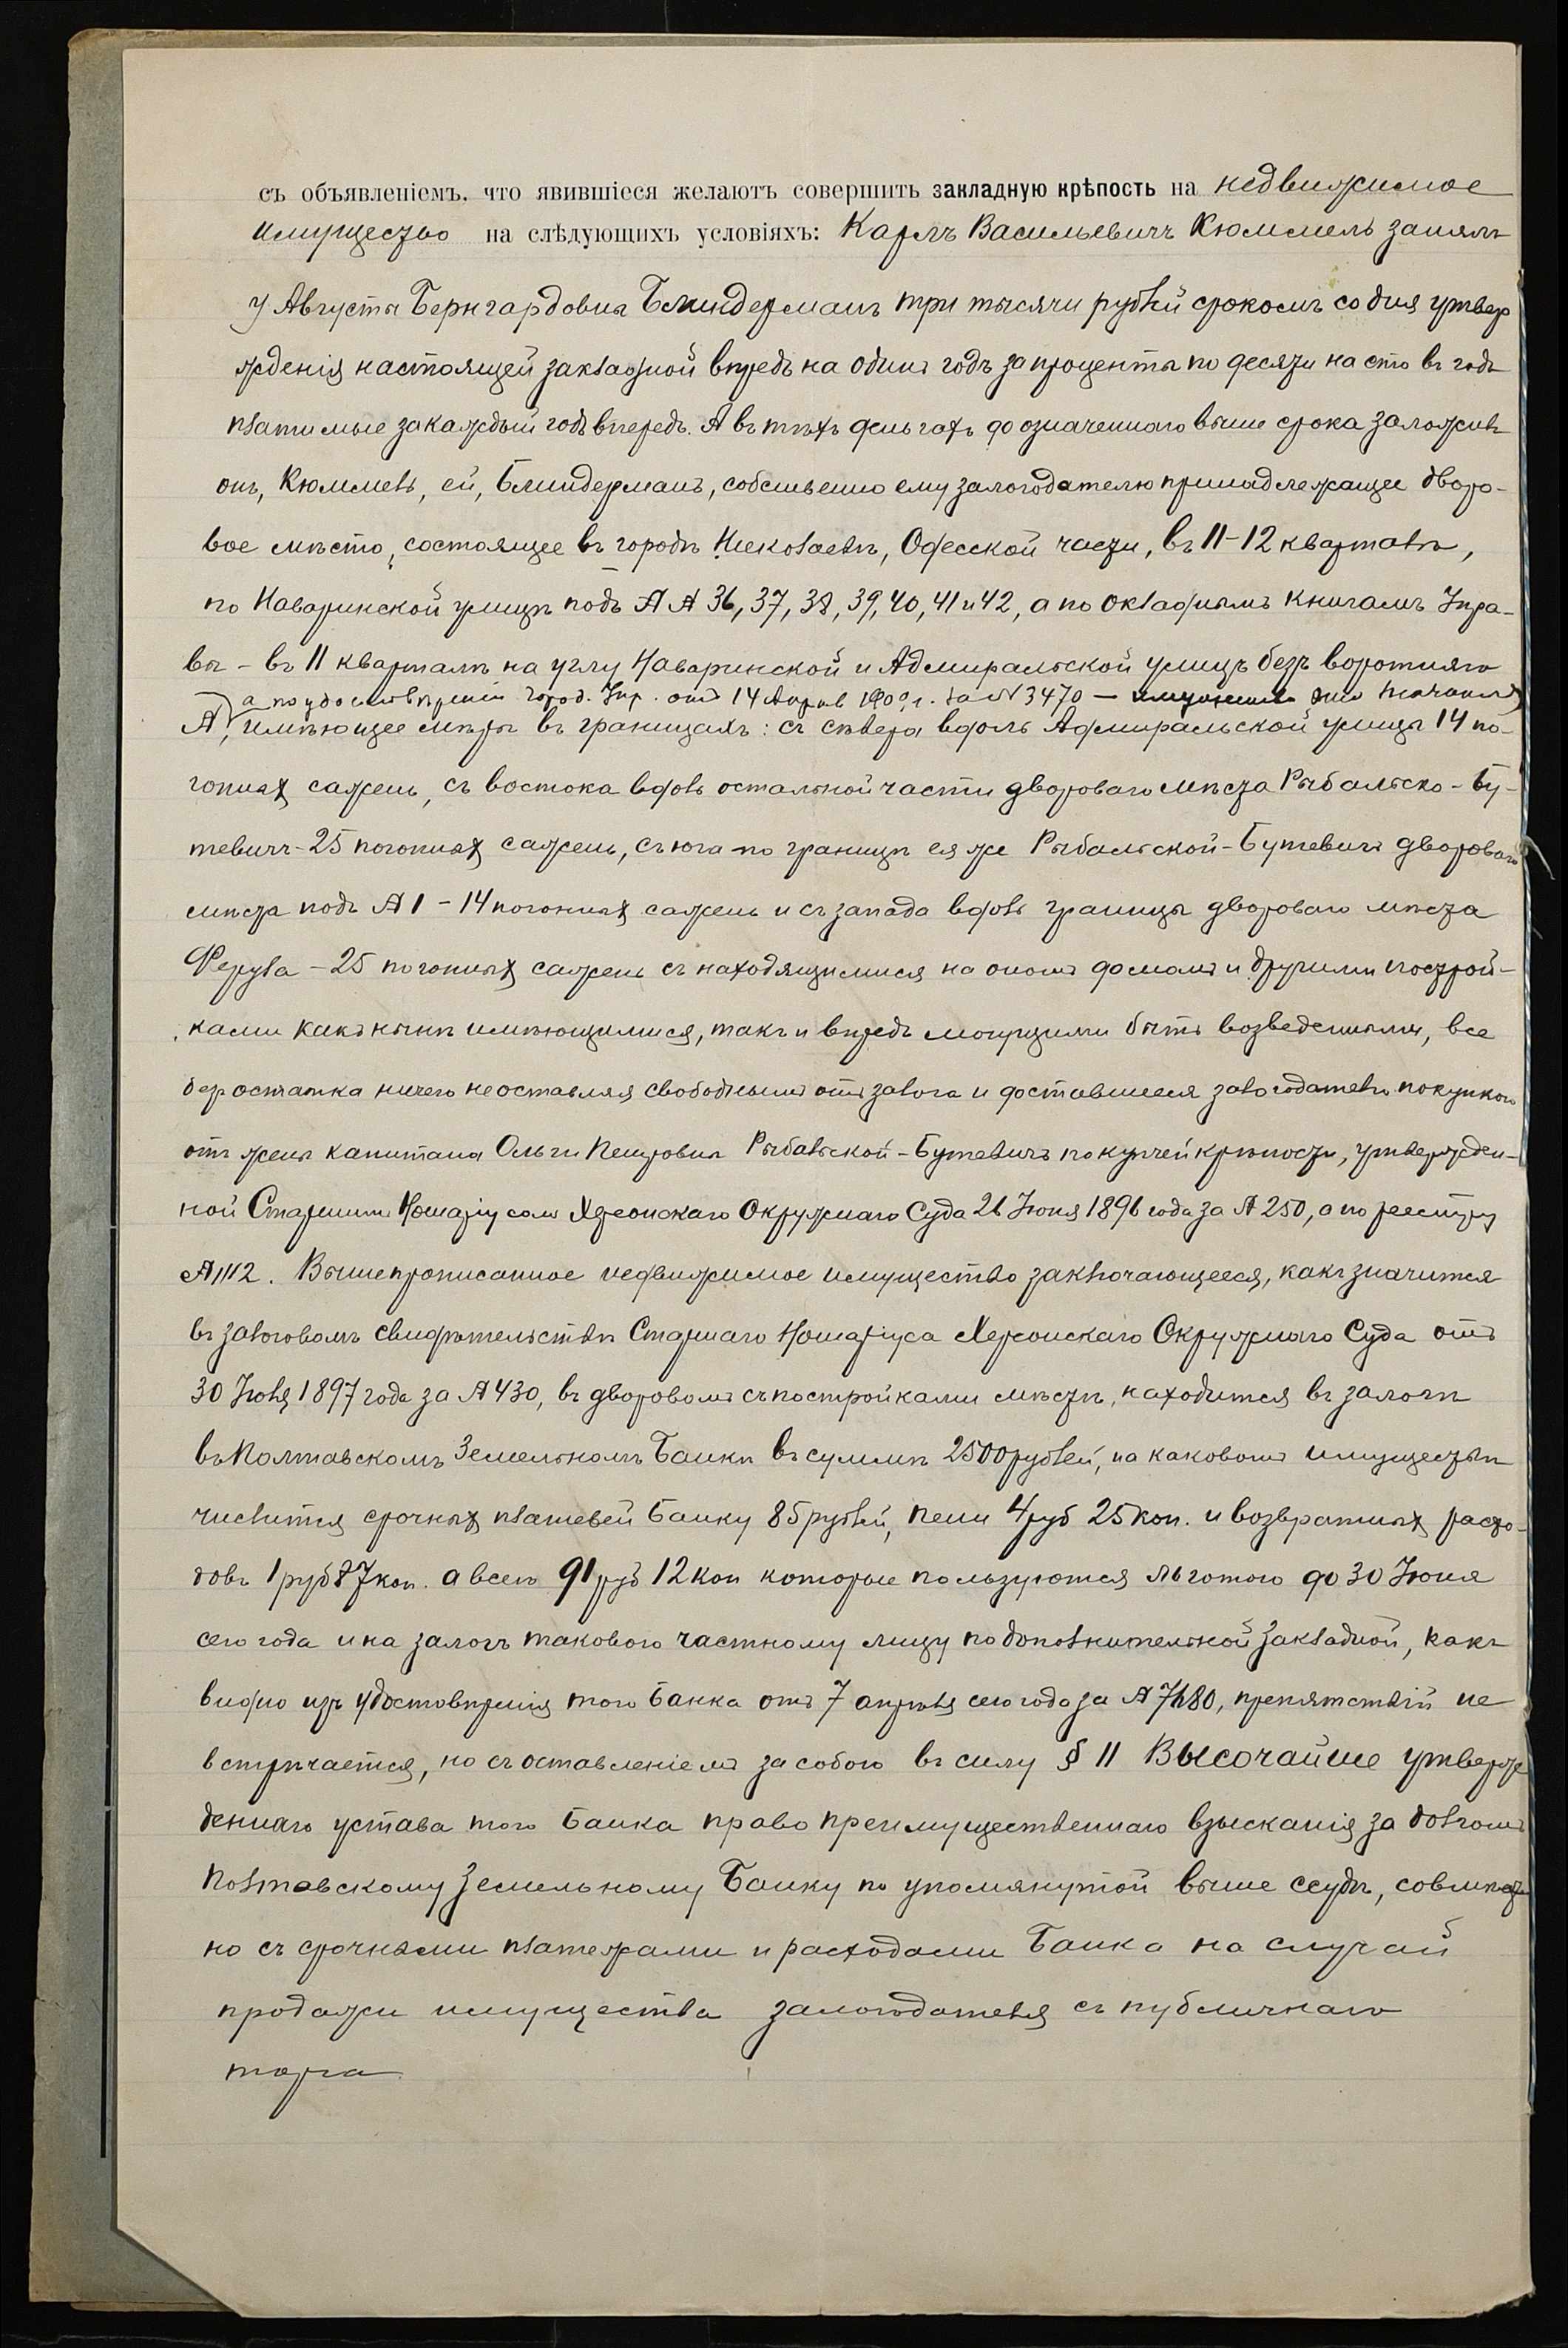 съ объявленіемъ, что явившіеся желаютъ совершить закладную крѣпость на недвижимое
имущество на слѣдующихъ условіяхъ: Карлъ Васильевичъ Кюммель занялъ
у Августы Бернгардовны Блиндерманъ три тысячи рублей срокомъ со дня утвер
жденія настоящей закладной впредь на одинъ годъ за проценты по десяти на сто въ годъ
платимые за каждый годъ впередъ. А въ тѣхъ деньгахъ до означеннаго выше срока заложилъ
онъ, Кюммель, ей, Блиндерманъ, собственно ему залогодателю принадлежащее дворо-
вое мѣсто, состоящее въ городѣ Николаевѣ, Одесской части, въ 11-12 кварталѣ,
по Наваринской улицѣ подъ №№ 36, 37, 38, 39, 40, 41 и 42, а по окладнымъ книгамъ Упра-
вы - въ 11 кварталѣ на углу Наваринской и Адмиральской улицъ безъ воротняго
а по удостовѣренію Город. Упр. отъ 14 Апрѣля 1900 г. за № 3470 —
№, имѣющее мѣры въ границахъ: съ сѣвера вдоль Адмиральской улицы 14 по-
гонныхъ сажень, съ востока вдоль остальной части двороваго мѣста Рыбальско-Бу-
тевичъ - 25 погонныхъ сажень, съ юга по границѣ ея же Рыбальской-Бутевичъ двороваго
мѣста подъ № 1 - 14 погонныхъ сажень и съ запада вдоль границы двороваго мѣста
Ферула - 25 погонныхъ сажень съ находящимися на ономъ домомъ и другими построй-
ками какъ нынѣ имѣющимися, такъ и впредь могущими быть возведенными, все
безъ остатка ничего не оставляя свободнымъ отъ залога и доставшееся залогодателю покупкою
отъ жены капитана Ольги Петровны Рыбальской-Бутевичъ по купчей крѣпости, утвержден-
ной Старшимъ Нотаріусомъ Херсонскаго Окружнаго Суда 26 Іюня 1896 года за № 250, а по реестру
№ 1112. Вышепрописанное недвижимое имущество заключающееся, какъ значится
въ залоговомъ свидѣтельствѣ Старшаго Нотаріуса Херсонскаго Окружнаго Суда отъ
30 Іюля 1897 года за № 430, въ дворовомъ съ постройками мѣстѣ, находится въ залогѣ
въ Полтавскомъ Земельномъ Банкѣ въ суммѣ 2500 рублей, на каковомъ имуществѣ
числится срочныхъ платежей Банку 85 рублей, пени 4 руб 25 коп. и возвратныхъ расхо-
довъ 1 руб 87 коп. а всего 91 руб 12 коп которые пользуются льготою до 30 Іюня
сего года и на залогъ такового частному лицу по дополнительной закладной, какъ
видно изъ удостовѣренія того Банка отъ 7 апрѣля сего года за № препятствій не
встрѣчается, но съ оставленіемъ за собою въ силу § 11 Высочайше утверж
деннаго устава того Банка право преимущественнаго взысканія за долгомъ
Полтавскому Земельному Банку по упомянутой выше ссудѣ, совмѣст
но съ срочными платежами и расходами Банка на случай
продажи имущества залогодателя съ публичнаго
торга